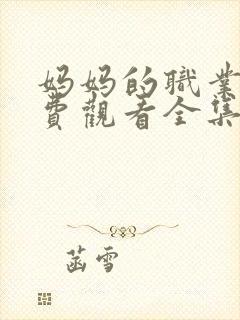 妈妈的職業
費觀看全集
菡雪